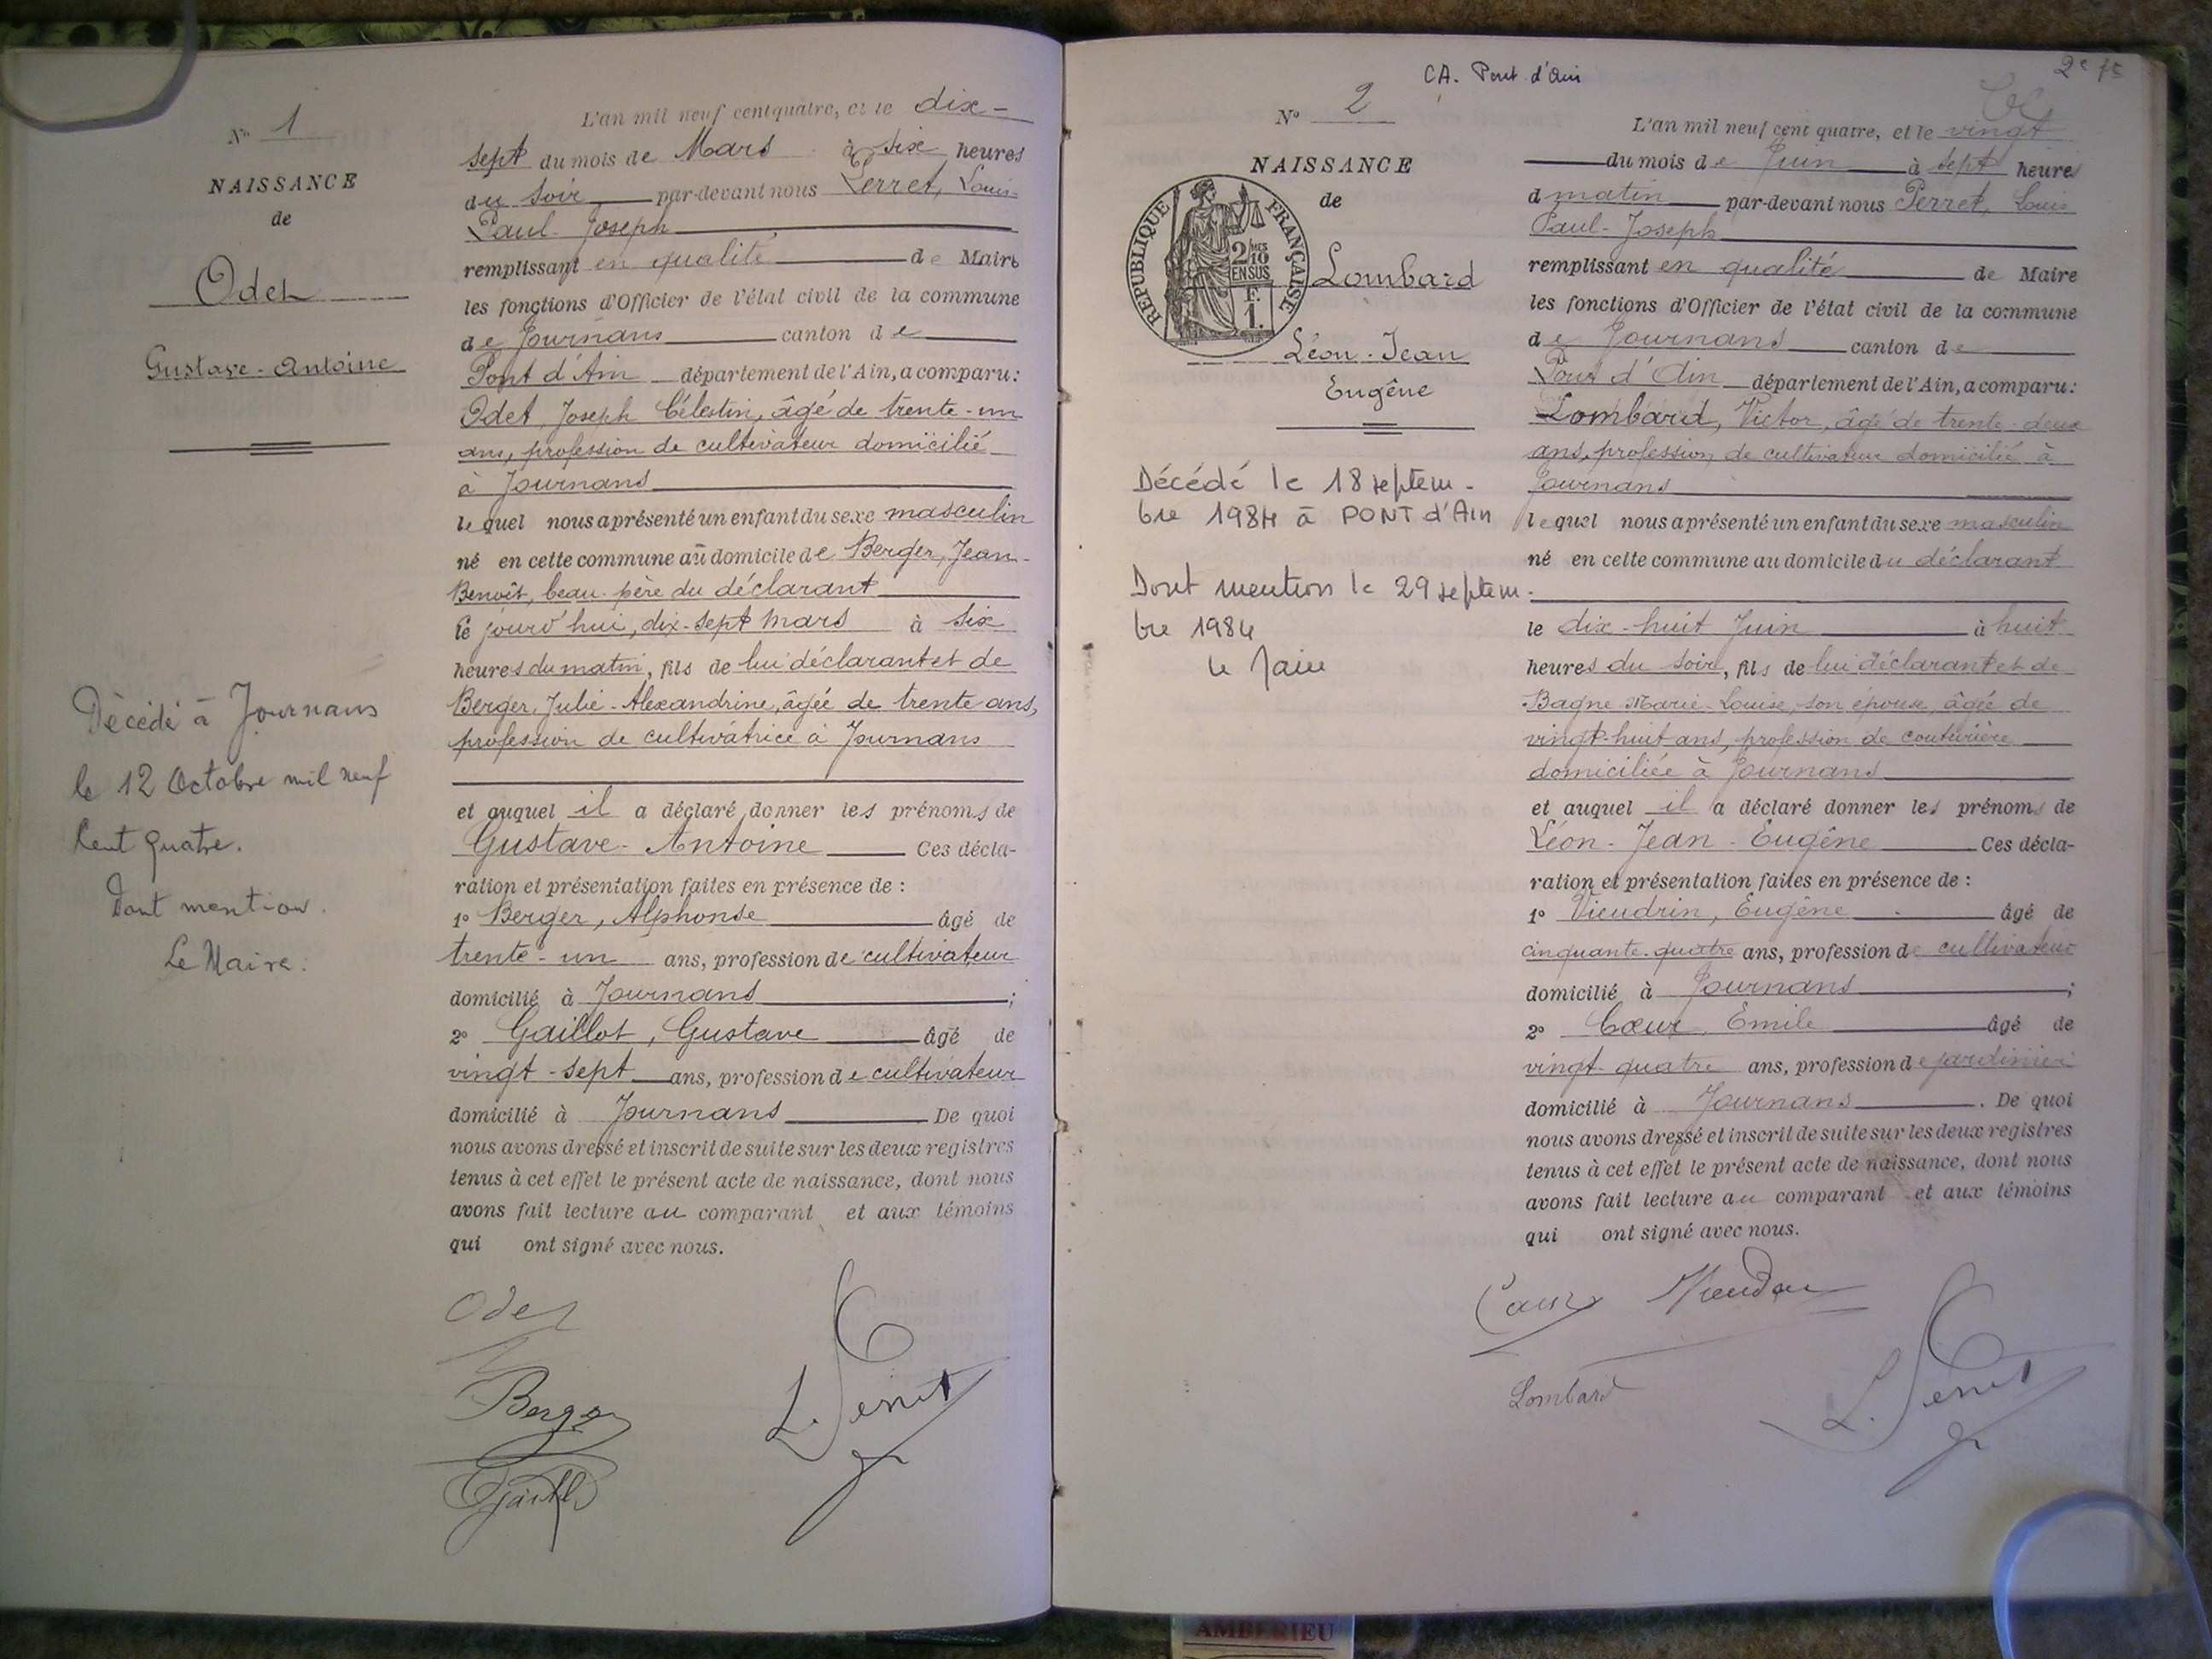 N° 1
NAISSANCE
de
Odet
Gustave-Antoine
Décédé à Journans
le 12 Octobre mil neuf
Cent quatre.
Dont mention.
Le Maire.
L'an mil neuf cent quatre, et le dix-
sept du mois de Mars à six heures
du soir par-devant nous Perret, Louis
Paul-Joseph
remplissant en qualité de Maire
les fonctions d'Officier de l'état civil de la commune
de Journans canton de
Pont d'Ain département de l'Ain, a comparu:
Odet, Joseph Célestin, âgé de trente-un
ans, profession de cultivateur domicilié
à Journans
lequel nous a présenté un enfant du sexe masculin
né en cette commune au domicile de Berger, Jean-
Benoît, beau-père du déclarant
le jourd'hui, dix-sept mars à six
heures du matin, fils de lui déclarant et de
Berger, Julie-Alexandrine, âgée de trente ans,
profession de cultivatrice à Journans
et auquel il a déclaré donner les prénoms de
Gustave-Antoine Ces décla-
ration et présentation faites en présence de :
1° Berger, Alphonse âgé de
trente-un ans, profession de cultivateur
domicilié à Journans ;
2° Gaillot, Gustave âgé de
vingt-sept ans, profession de cultivateur
domicilié à Journans De quoi
nous avons dressé et inscrit de suite sur les deux registres
tenus à cet effet le présent acte de naissance, dont nous
avons fait lecture au comparant et aux témoins
qui ont signé avec nous.
Odet
Berger
L. Perret
CA. Pont d'Ain
N° 2
NAISSANCE
de
REPUBLIQUE FRANÇAISE
2/10
EN SUS
F.
1.
Lombard
Léon-Jean
Eugène
Décédé le 18 septem-
bre 1984 à PONT d'Ain
Dont mention le 29 septem-
bre 1984
le Maire
L'an mil neuf cent quatre, et le vingt
du mois de Juin à sept heure
d matin par-devant nous Perret, Louis
Paul-Joseph
remplissant en qualité de Maire
les fonctions d'Officier de l'état civil de la commune
de Journans canton de
Pont d'Ain département de l'Ain, a comparu:
Lombard, Victor, âgé de trente-deux
ans, profession de cultivateur domicilié à
Journans
lequel nous a présenté un enfant du sexe masculin
né en cette commune au domicile du déclarant
le dix-huit Juin à huit
heures du soir, fils de lui déclarant et de
Bagne Marie-Louise, son épouse, âgée de
vingt-huit ans, profession de couturière
domiciliée à Journans
et auquel il a déclaré donner les prénoms de
Léon-Jean-Eugène Ces décla-
ration et présentation faites en présence de :
1° Vieudrin, Eugène âgé de
cinquante-quatre ans, profession de cultivateur
domicilié à Journans ;
2° Cœur, Emile âgé de
vingt-quatre ans, profession de jardinier
domicilié à Journans . De quoi
nous avons dressé et inscrit de suite sur les deux registres
tenus à cet effet le présent acte de naissance, dont nous
avons fait lecture au comparant et aux témoins
qui ont signé avec nous.
Lombard
L. Perret
AMBERIEU